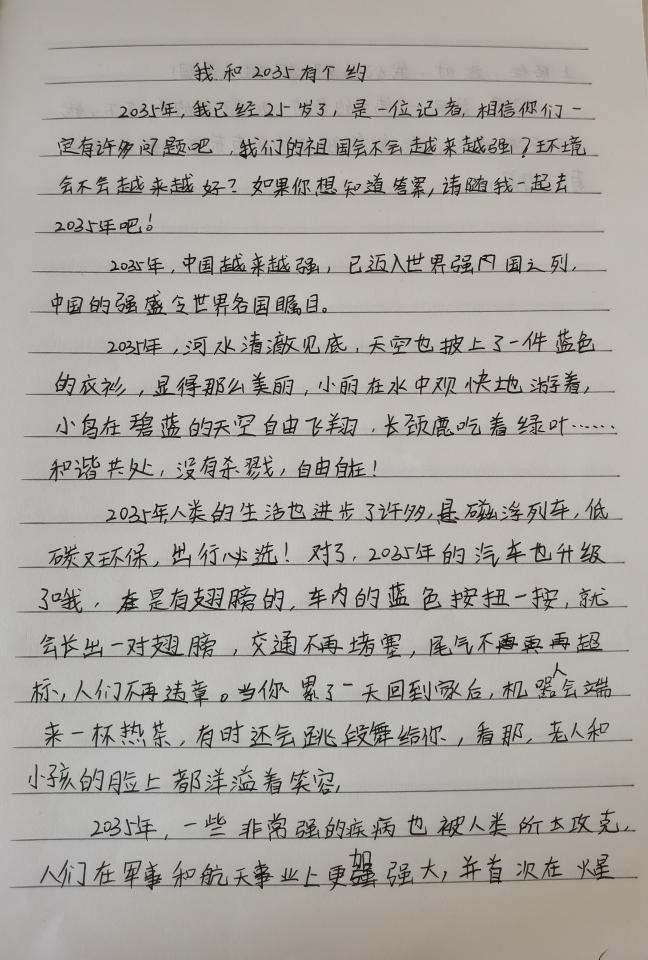 我和2035有个约
2035年,我已经25岁了,是一位记者,相信你们一
定有许多问题吧,我们的祖国会不会越来越强?环境
会不会越来越好?如果你想知道答案,请随我一起去
2035年吧!
2035年,中国越来越强,已迈入世界强国之列,
中国的强盛令世界各国瞩目。
2035年,河水清澈见底,天空也披上了一件蓝色
的衣衫,显得那么美丽,小丽在水中观快地游着,
小鸟在碧蓝的天空自由飞翔,长颈鹿吃着绿叶……
和谐共处,没有杀戮,自由自在!
2035年人类的生活也进步了许多,悬磁浮列车,低
碳又环保,出行必选!对了,2035年的汽车也升级
了哦,是有翅膀的,车内的蓝色按扭一按,就
会长出一对翅膀,交通不再堵塞,尾气不再超
标,人们不再违章。当你累了一天回到家后,机器人会端
来一杯热茶,有时还会跳段舞给你,看那,老人和
小孩的脸上都洋溢着笑容,
2035年,一些非常强的疾病也被人类所攻克,
人们在军事和航天事业上更加强大,并首次在火星